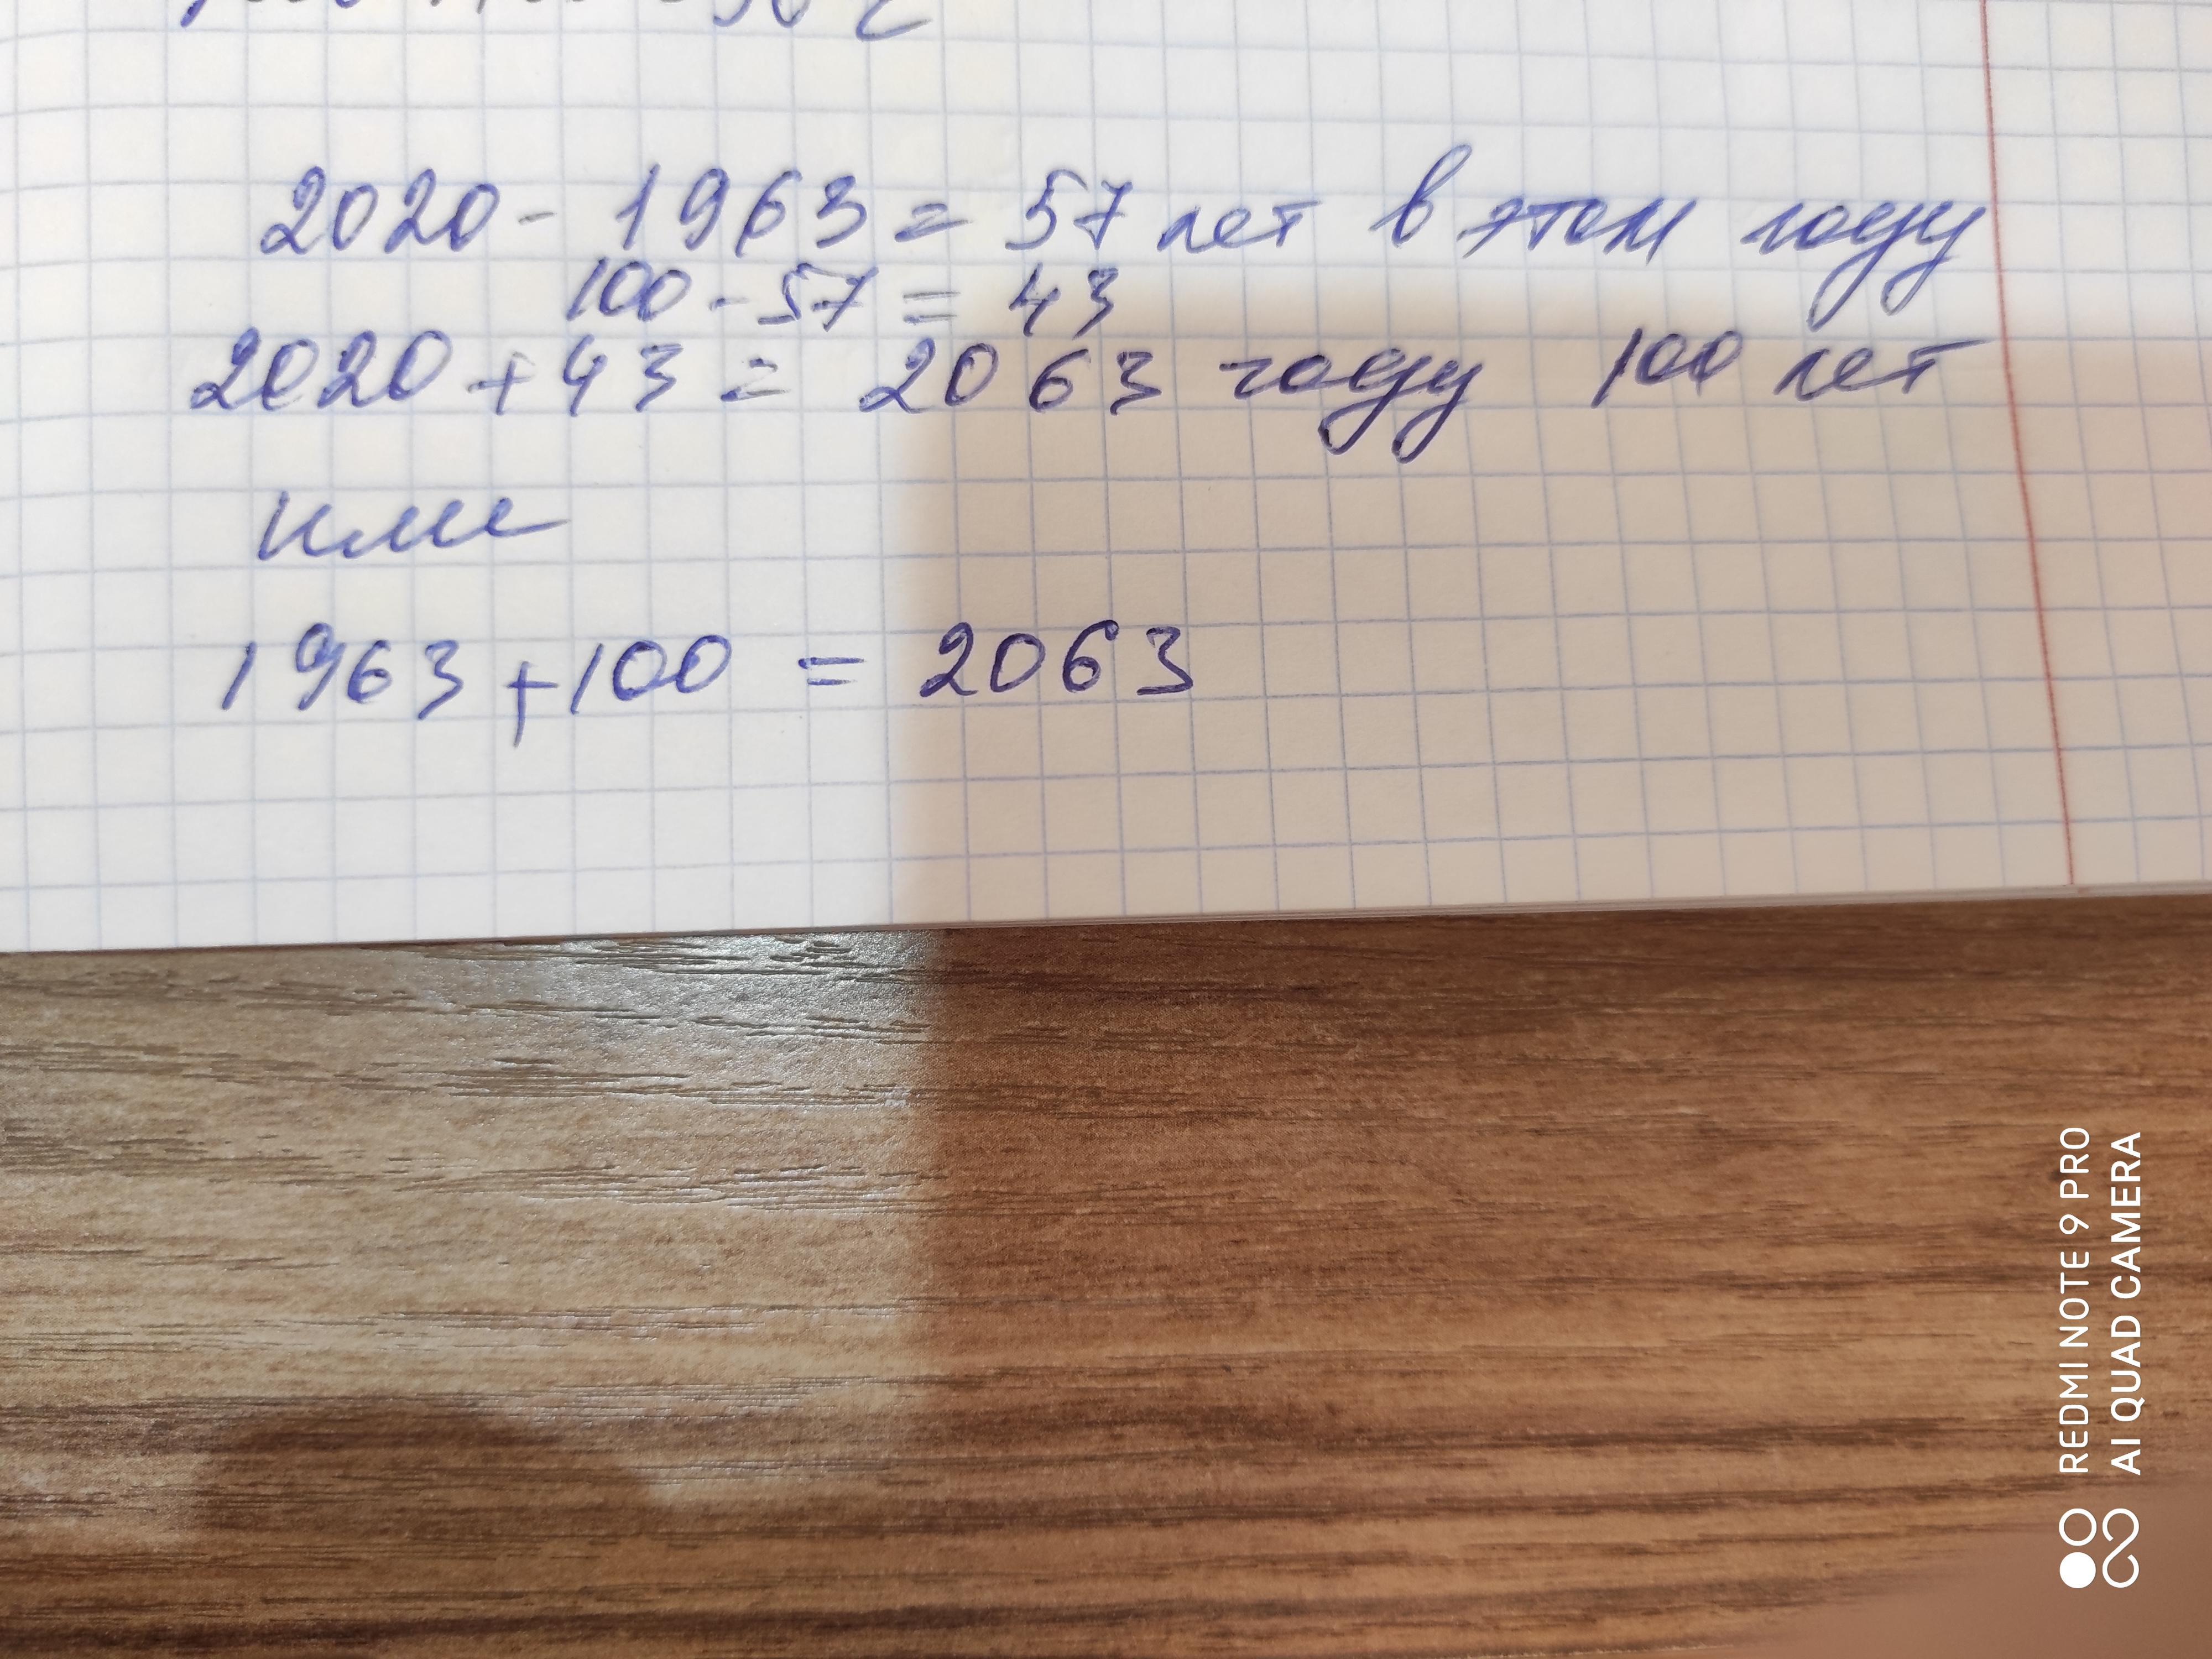 2020 - 1963 = 57 лет в этом году
100 - 57 = 43
2020 + 43 = 2063 году 100 лет
или
1963 + 100 = 2063
REDMI NOTE 9 PRO
AI QUAD CAMERA